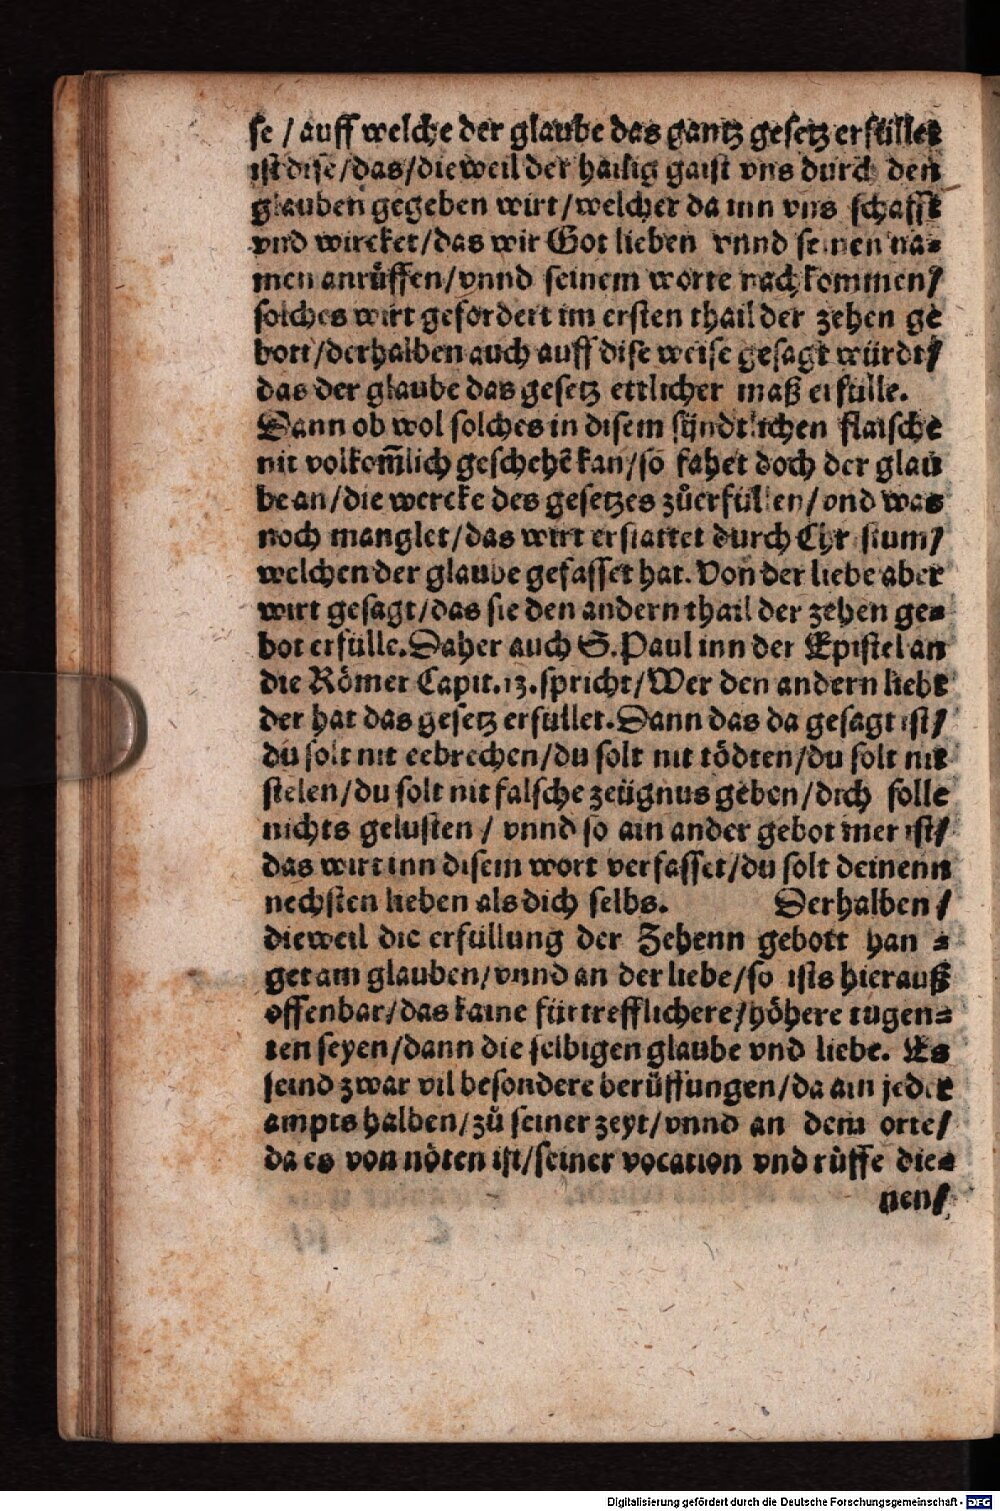 se / auff welche der glaube das gantz gesetz erfüllet
ist dise/das/dieweil der hailig gaist vns durch den
glauben gegeben wirt/welcher da inn vns schafft
vnd wircket/das wir Got lieben vnnd seinen na-
men anrüffen/vnnd seinem worte nachkommen/
solches wirt gefordert im ersten thail der zehen ge
bott/derhalben auch auff dise weise gesagt würdt/
das der glaube das gesetz ettlicher maß erfülle.
Dann ob wol solches in disem sündtlichen flaische
nit volkom̃lich geschehẽ kan/so fahet doch der glau
be an/die wercke des gesetzes zůerfüllen/vnd was
noch manglet/das wirt erstattet durch Christum/
welchen der glaube gefasset hat. Von der liebe aber
wirt gesagt/das sie den andern thail der zehen ge-
bot erfülle. Daher auch S. Paul inn der Epistel an
die Römer Capit.13. spricht/Wer den andern liebt
der hat das gesetz erfüllet. Dann das da gesagt ist/
du solt nit eebrechen/du solt nit tödten/du solt nit
stelen/du solt nit falsche zeügnus geben/dich solle
nichts gelusten / vnnd so ain ander gebot mer ist/
das wirt inn disem wort verfasset/du solt deinenn
nechsten lieben als dich selbs. Derhalben /
dieweil die erfüllung der Zehenn gebott han -
get am glauben/vnnd an der liebe/so ists hierauß
offenbar/das kaine fürtrefflichere/höhere tugen-
ten seyen/dann die selbigen glaube vnd liebe. Es
seind zwar vil besondere berüffungen/da ain jeder
ampts halben/zů seiner zeyt/vnnd an dem orte/
da es von nöten ist/seiner vocation vnd rüffe die-
nen/
Digitalisierung gefördert durch die Deutsche Forschungsgemeinschaft - DFG